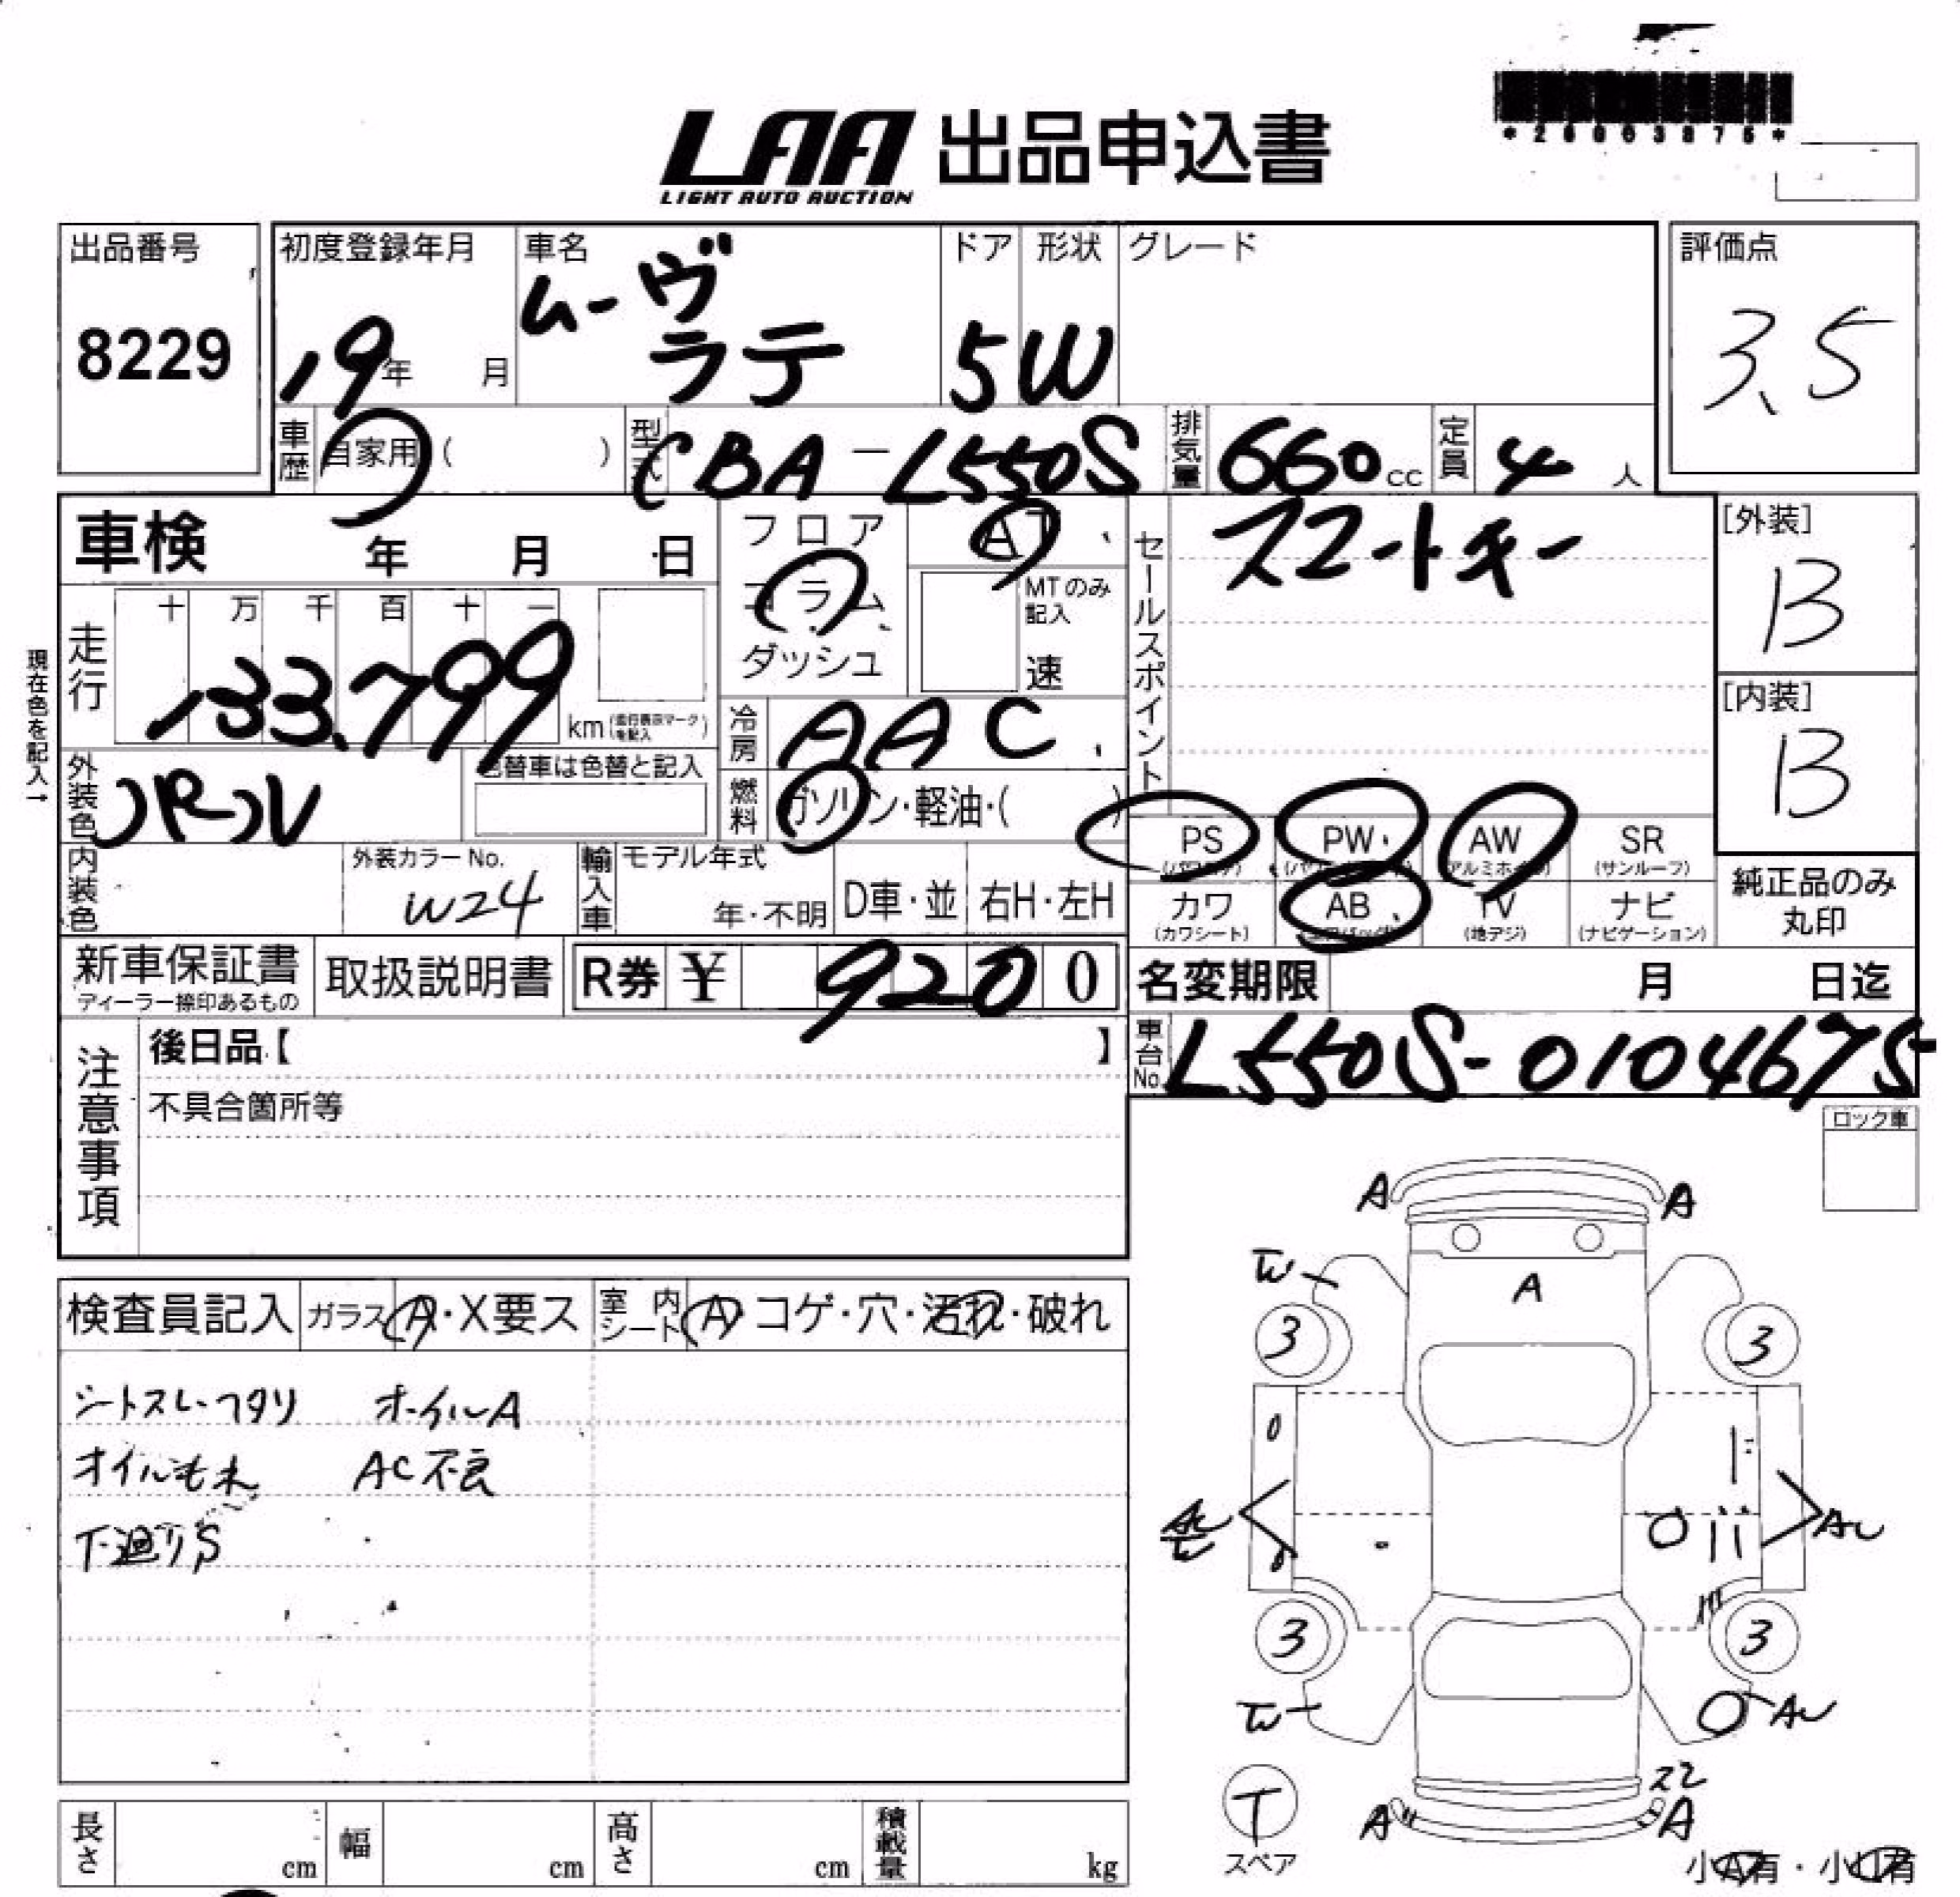 *28003875*
LAA 出品申込書
LIGHT AUTO AUCTION
出品番号 初度登録年月 車名 ドア 形状 グレード 評価点
8229 19年 月 ムーヴ ラテ 5 W 3.5
車歴 自家用 ( ) 型式 CBA-L550S 排気量 660cc 定員 4人
車検 年 月 日 フロア AT セールスポイント スマートキー [外装] B
コラム MTのみ記入
ダッシュ 速
現在色を記入→
走行 十 万 千 百 十 一
133,799 km (走行表示マークを記入)
冷房 AAC [内装] B
外装色 パール 色替車は色替と記入 燃料 ガソリン・軽油・( )
PS (パワステ) PW AW (アルミホイル) SR (サンルーフ)
内装色 外装カラーNo. W24 輸入車 モデル年式 年・不明 D車・並 右H・左H
カワ (カワシート) AB (エアバッグ) TV (地デジ) ナビ (ナビゲーション) 純正品のみ丸印
新車保証書 ディーラー捺印あるもの 取扱説明書 R券 ¥ 9200 名変期限 月 日迄
車台No. L550S-0104675
注意事項 後日品【 】
不具合箇所等
ロック車
検査員記入 ガラス A・X要ス 室内シート A コゲ・穴・汚れ・破れ
シートスレ・フタリ ホイルA
オイルもれ AC不良
下廻りS
A A
A
3 3
AU
3 3
AU
T スペア
A A
長さ cm 幅 cm 高さ cm 積載量 kg
小A有・小U有